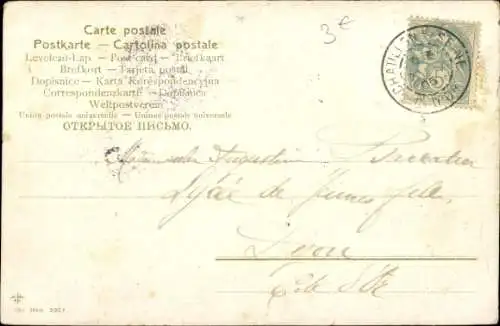 Carte postale
Postkarte — Cartolina postale
Levelező-Lap — Post card — Briefkaart
Brefkort — Tarjeta postal
Dopisnice — Karta Korespondencyjna
Correspondenzkarte — Dopisnica
Weltpostverein
Union postale universelle — Unione postale universale
ОТКРЫТОЕ ПИСЬМО.
3€
Augustine
Lycée de Jeunes filles
Lyon
Côte d'Or